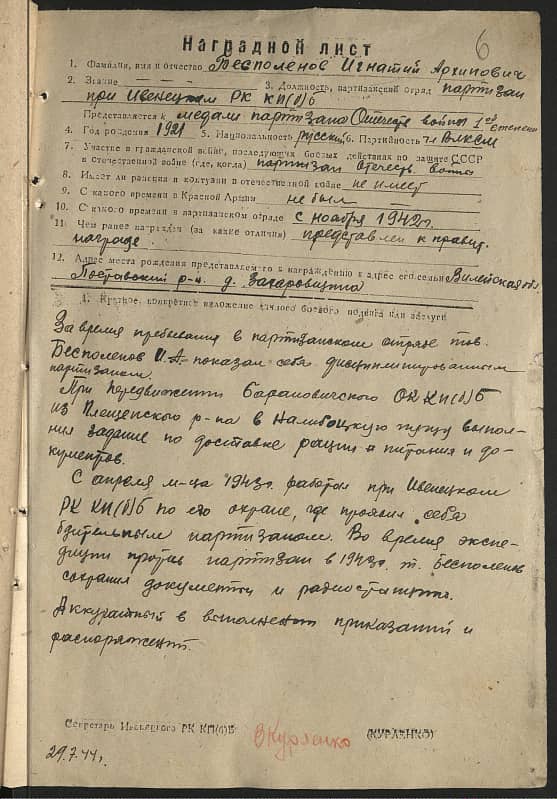 6
Наградной лист
1. Фамилия, имя и отчество Бесполенов Игнатий Архипович
2. Звание — — — — 3. Должность, партизанский отряд партизан
при Ивенецком РК КП(б)б
Представляется к медали партизана Отечеств войны 1ой степени
4. Год рождения 1921 5. Национальность русский 6. Партийность чл ВЛКСМ
7. Участие в гражданской войне, последующих боевых действиях по защите СССР
и отечественной войне (где, когда) партизан Отечеств. войны
8. Имеет ли ранения и контузии в отечественной войне не имеет
9. С какого времени в Красной Армии не был
10. С какого времени в партизанском отряде с ноября 1942г.
11. Чем ранее награжден (за какие отличия) представлен к правит.
награде
12. Адрес места рождения представляемого к награждению и адрес его семьи Вилейская обл.
Поставский р-н д. Захаровщина
1. Краткое, конкретное изложение личного боевого подвига или заслуги
За время пребывания в партизанском отряде тов.
Бесполенов И.А. показал себя дисциплинированным
партизаном.
При передвижении Барановичского ОК КП(б)б
из Плещенского р-на в Налибоцкую пущу выпол-
нял задание по доставке рации и питания и до-
кументов.
С апреля м-ца 1943г. работал при Ивенецком
РК КП(б)б по его охране, где проявил себя
бдительным партизаном. Во время экспе-
диции против партизан в 1943г. т. Бесполенов
сохранил документы и радиостанцию.
Аккуратный в выполнении приказаний и
распоряжений.
Секретарь Ивенецкого РК КП(б)Б ВКурленко (КУРЛЕНКО)
29.7.44г.